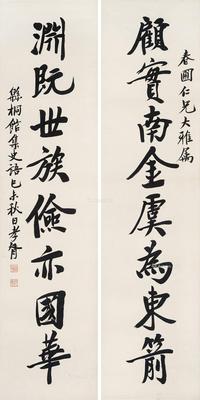 春圃仁兄大雅属
顧實南金虞為東箭
淵既世族儉亦國華
緜桐館集史語己未秋日孝胥